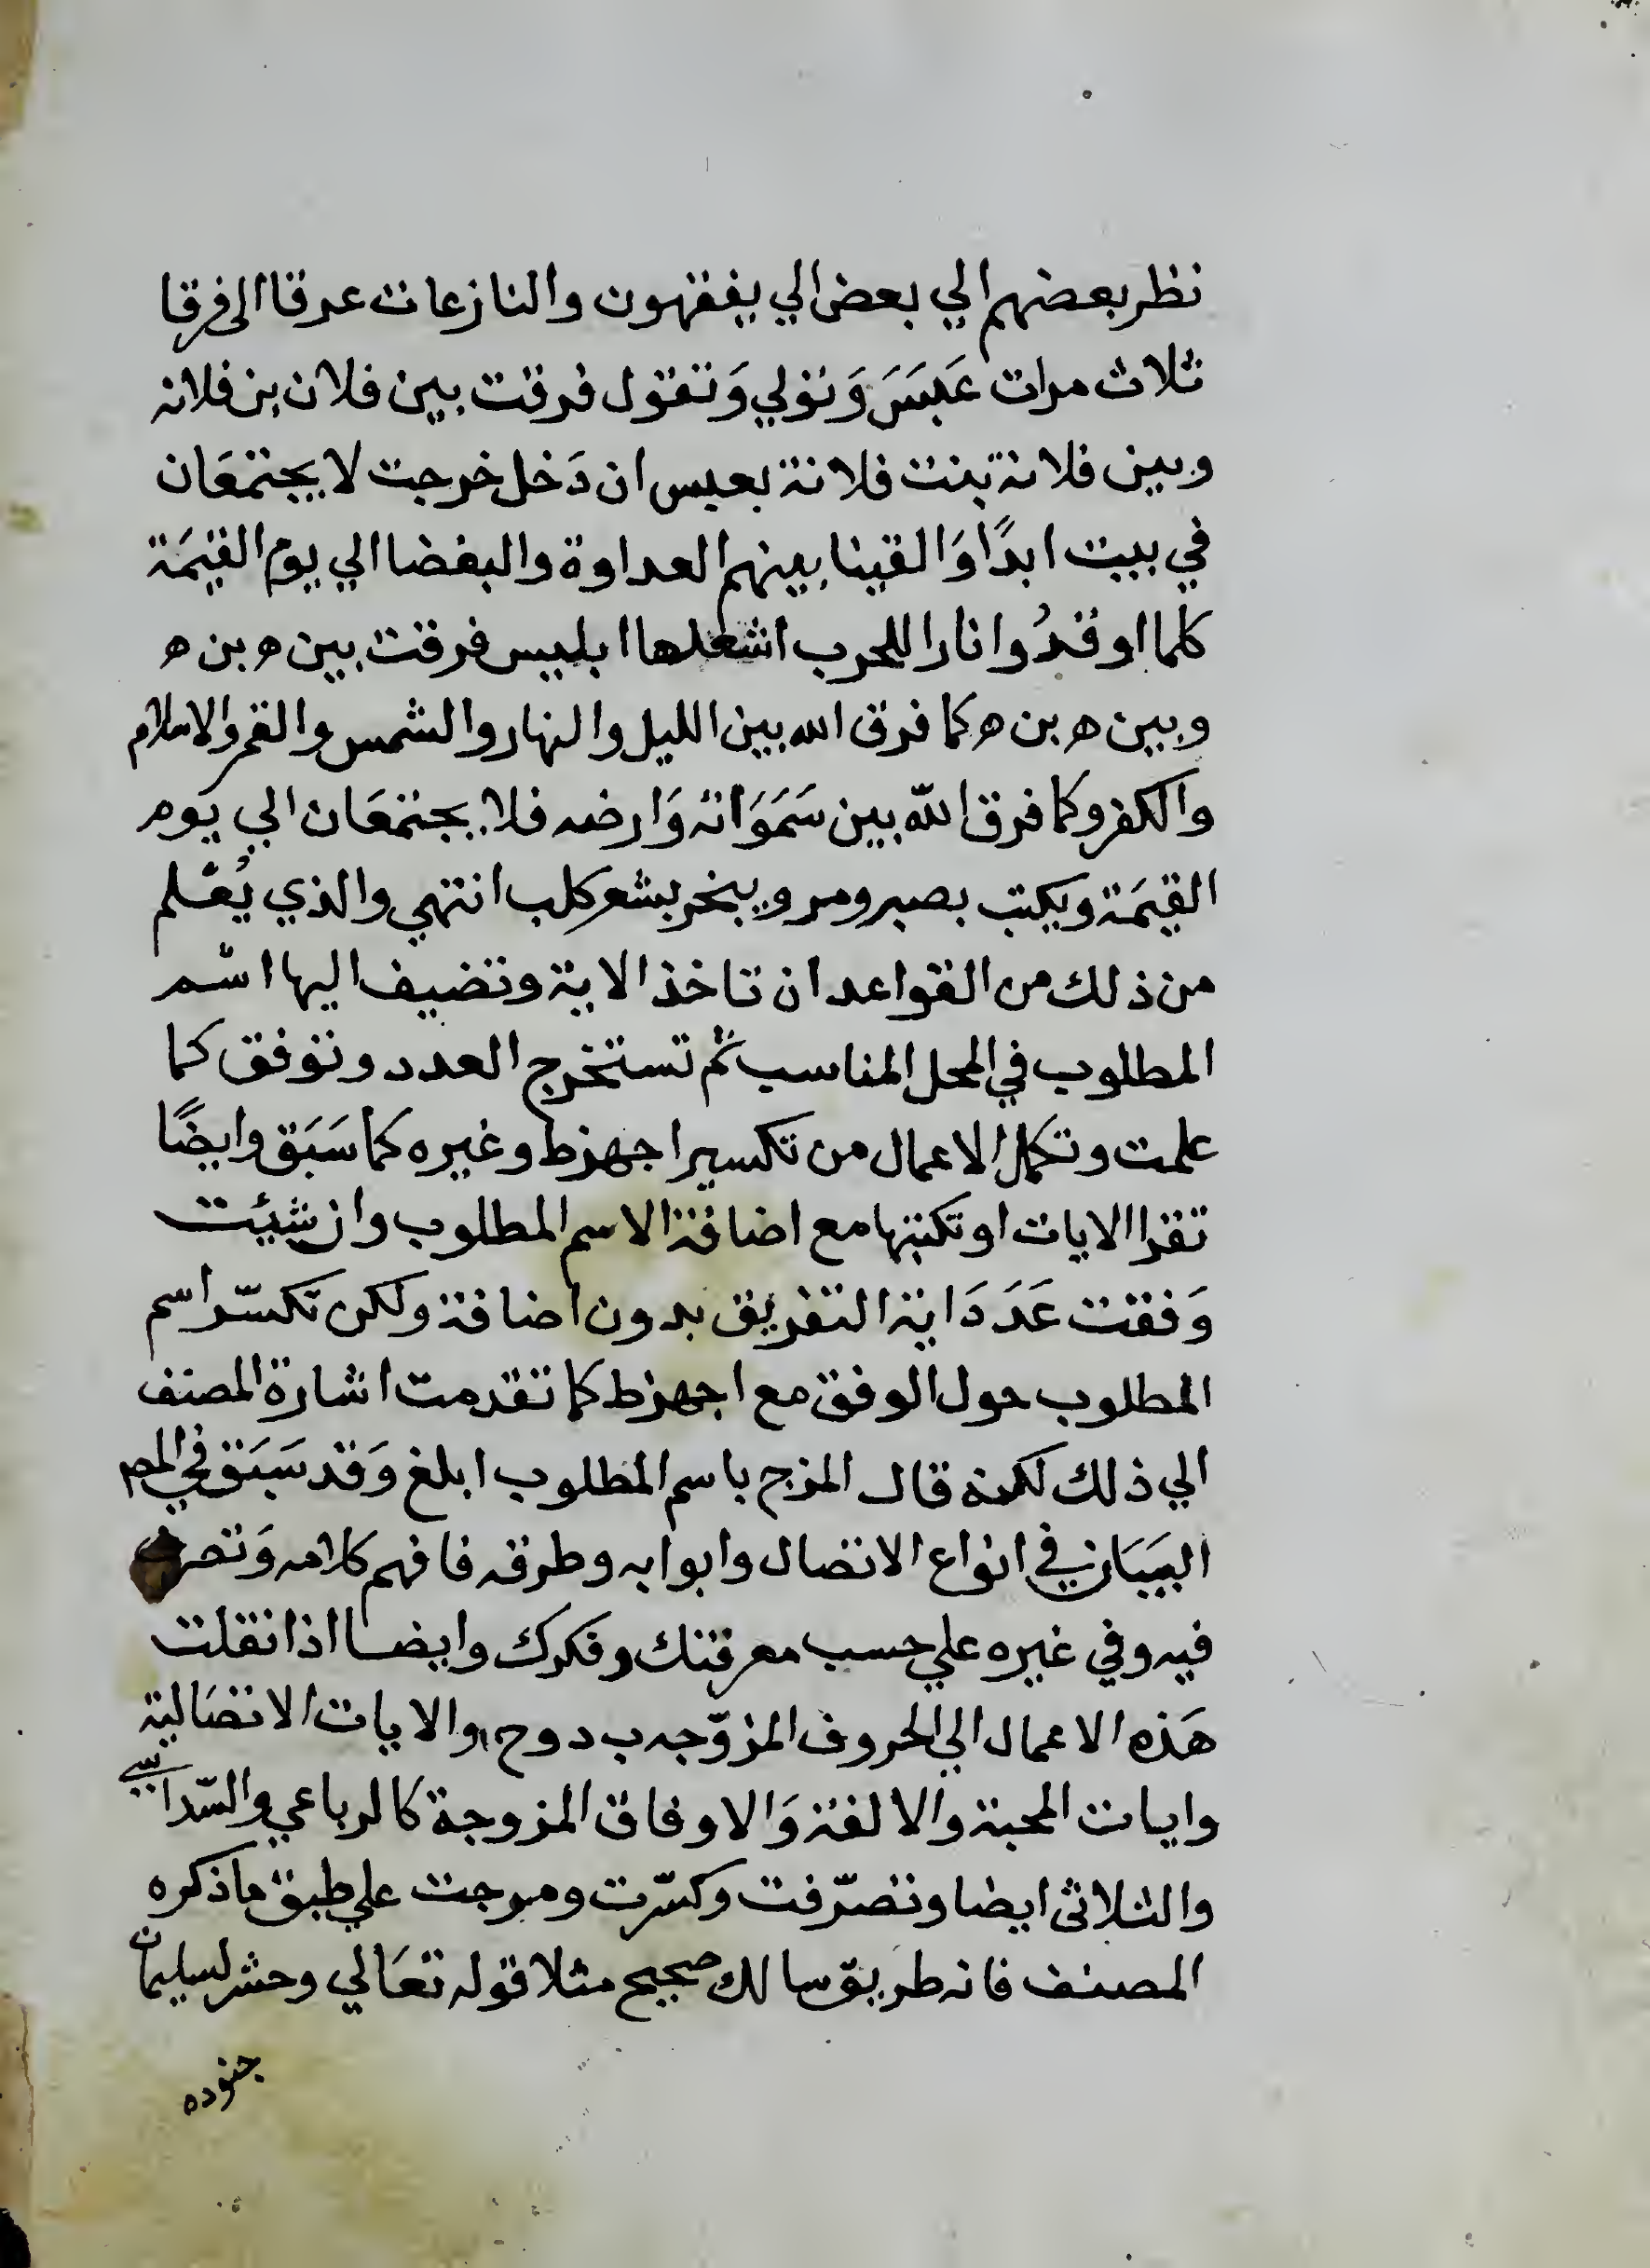 نظر بعضهم الي بعض الي يفقهون والنازعات عرقا الى فرقا
ثلاث مرات عَبَسَ وَتولي وَتقول فرقت بين فلان بن فلانه
وبين فلانة بنت فلانة بعبس ان دَخل خرجت لا يجتمعَان
في بيت ابدًا وَالقينا بينهم العداوة والبغضا الي يوم القيمَة
كلما اوقدُوا نارا للحرب اشعلها ابليس فرقت بين ه بن ه
وبين ه بن ه كما فرق الله بين الليل والنهار والشمس والقمر والاسلام
والكفر وكما فرق اللّه بين سَمَوَاته وَارضه فلا يجتمعَان الي يَوم
القيمَة ويكتب بصبر ومر ويبخر بشعر كلب انتهي والذي يُعْلم
من ذلك من القواعد ان تاخذ الاية وتضيف اليها اسْم
المطلوب في المحل المناسب ثم تستخرج العدد وتوفق كما
علمت وتكمل الاعمال من تكسير اجهزط وغيره كما سَبَق وايضًا
تقرا الايات او تكتبها مع اضافة الاسم المطلوب وان شيئت
وَفقت عَدَدَ اية التفريق بدون اضافة ولكن تكسّر اسم
المطلوب حول الوفق مع اجهزط كما تقدمت اشارة المصنف
الي ذلك لكنه قال المزج باسم المطلوب ابلغ وَقد سَبَق في المص
البيَان في انواع الاتصال وابوابه وطرقه فافهم كلامه وَتصرف
فيه وفي غيره علي حسب معرفتك وفكرك وايضا اذا نقلت
هَذه الاعمال الي الحروف المزوّجه ب د و ح والايات الاتصَالية
وايات المحبة والالفة وَالاوفاق المزوجة كالرباعي والسّداسي
والثلاثى ايضا وتصرّفت وكسّرت ومزجت علي طبق ما ذكره
المصنف فانه طريق سالك صحيح مثلا قوله تعَالي وحشر لسليمان
جنوده